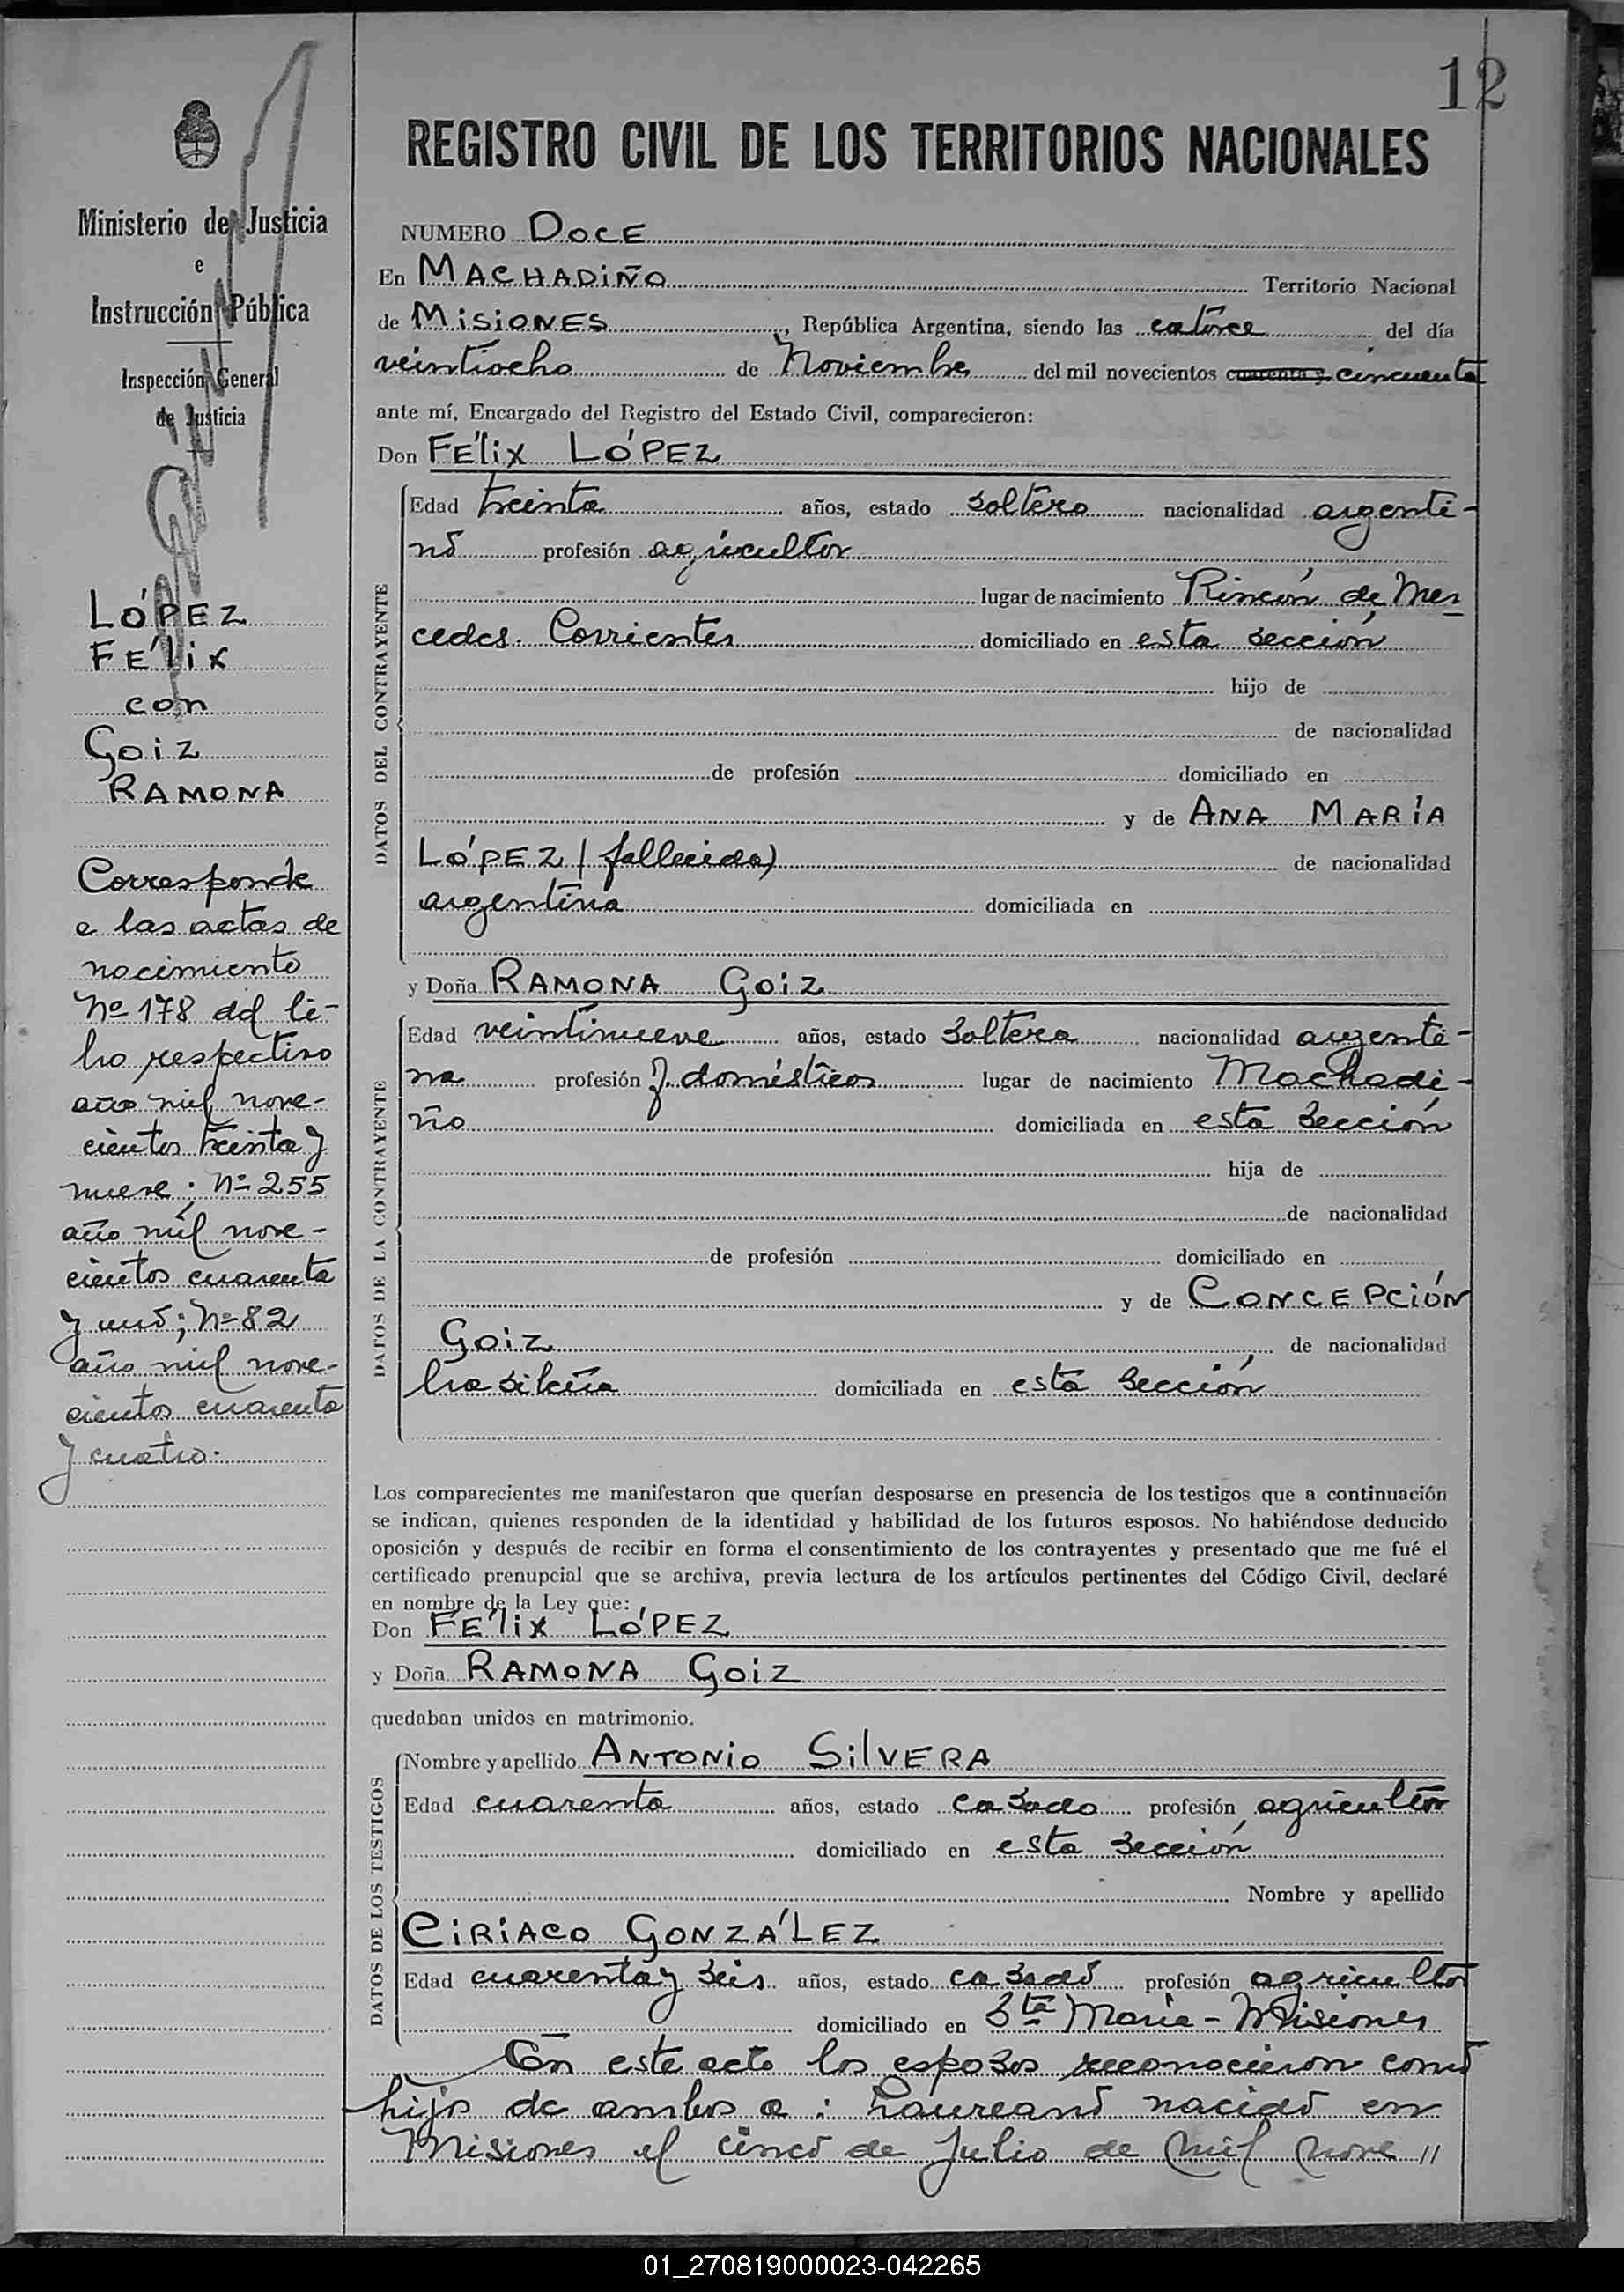 12
REGISTRO CIVIL DE LOS TERRITORIOS NACIONALES
Ministerio de Justicia
e
Instrucción Pública
Inspección General
de Justicia
LÓPEZ
FÉlix
con
Goiz
RAMONA
Corresponde
a las actas de
nacimiento
Nº 178 del li-
bro respectivo
año mil nove-
cientos treinta y
nueve; Nº 255
año mil nove-
cientos cuarenta
y uno; Nº 82
año mil nove-
cientos cuarenta
y cuatro.
NUMERO DOCE
En MACHADIÑO Territorio Nacional
de MISIONES, República Argentina, siendo las catorce del día
veintiocho de Noviembre del mil novecientos cuarenta y cincuenta
ante mí, Encargado del Registro del Estado Civil, comparecieron:
Don FÉlix LÓPEZ
DATOS DEL CONTRAYENTE
Edad treinta años, estado soltero nacionalidad argenti-
no profesión agricultor
lugar de nacimiento Rincón de Mer
cedes. Corrientes domiciliado en esta sección
hijo de
de nacionalidad
de profesión domiciliado en
y de ANA MARÍA
LÓPEZ (fallecida) de nacionalidad
argentina domiciliada en
y Doña RAMONA Goiz
DATOS DE LA CONTRAYENTE
Edad veintinueve años, estado soltera nacionalidad argenti-
na profesión q. domésticos lugar de nacimiento Machadi-
ño domiciliada en esta sección
hija de
de nacionalidad
de profesión domiciliado en
y de CONCEPCIÓN
Goiz de nacionalidad
brasileña domiciliada en esta sección
Los comparecientes me manifestaron que querían desposarse en presencia de los testigos que a continuación
se indican, quienes responden de la identidad y habilidad de los futuros esposos. No habiéndose deducido
oposición y después de recibir en forma el consentimiento de los contrayentes y presentado que me fué el
certificado prenupcial que se archiva, previa lectura de los artículos pertinentes del Código Civil, declaré
en nombre de la Ley que:
Don FÉlix LÓPEZ
y Doña RAMONA Goiz
quedaban unidos en matrimonio.
DATOS DE LOS TESTIGOS
Nombre y apellido ANTONIO SilVERA
Edad cuarenta años, estado casado profesión agricultor
domiciliado en esta sección
Nombre y apellido
CIRIACO GONZÁLEZ
Edad cuarenta y seis años, estado casado profesión agricultor
domiciliado en Sta María - Misiones
En este acto los esposos reconocieron como
hijo de ambos a: Laureano nacido en
Misiones el cinco de Julio de mil nove //
01_270819000023-042265